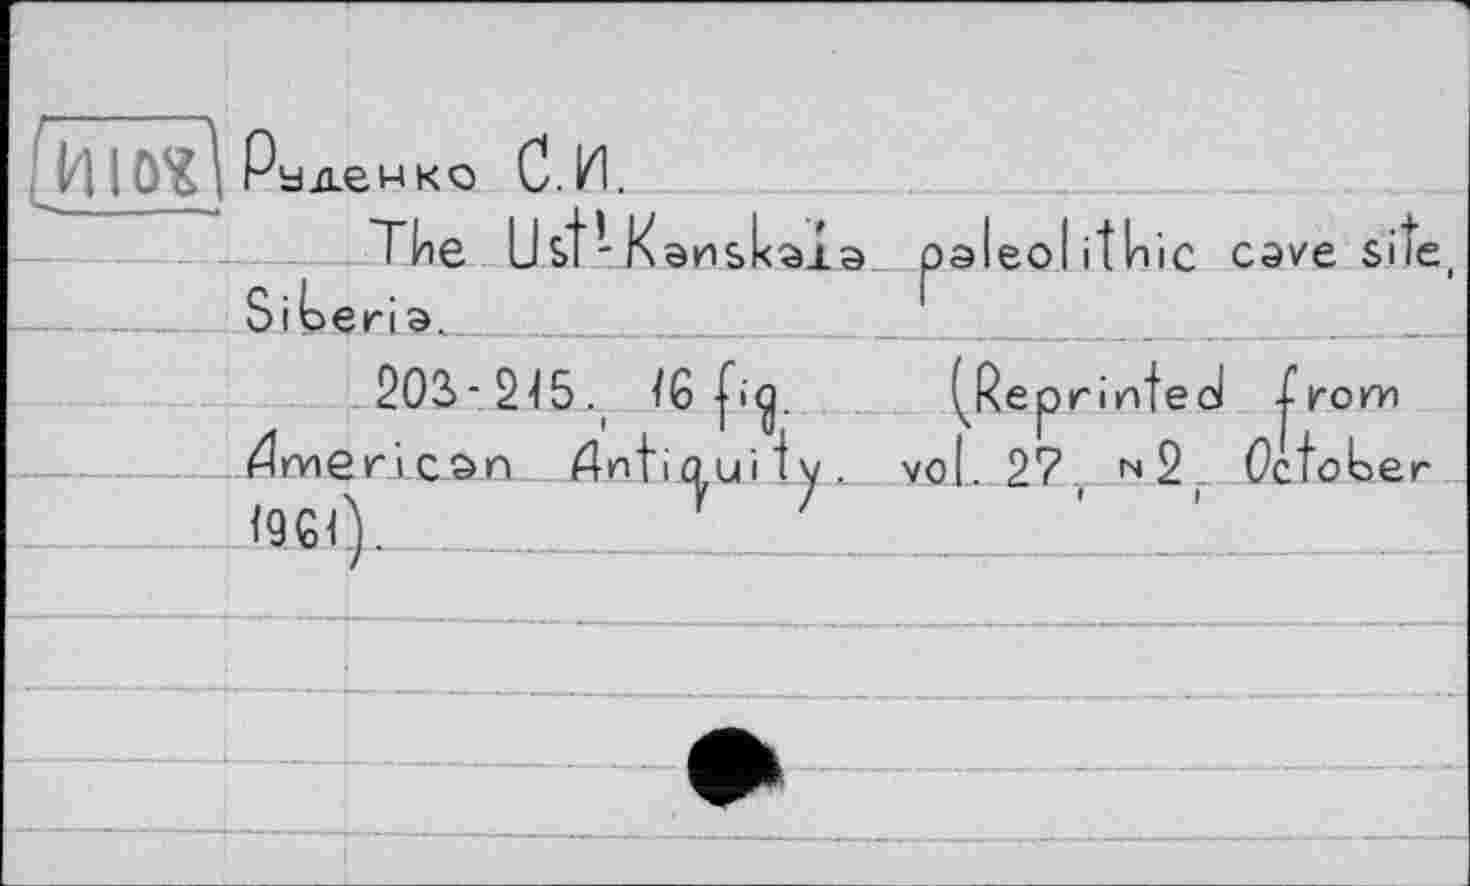 Руденко С.И.
The Ust'-Kanskaïa paleolithic cave site,
Siberia.
203-215., 16 fig. (Reprinted from
American Antiquity. vol. 27, N2, October
1961).